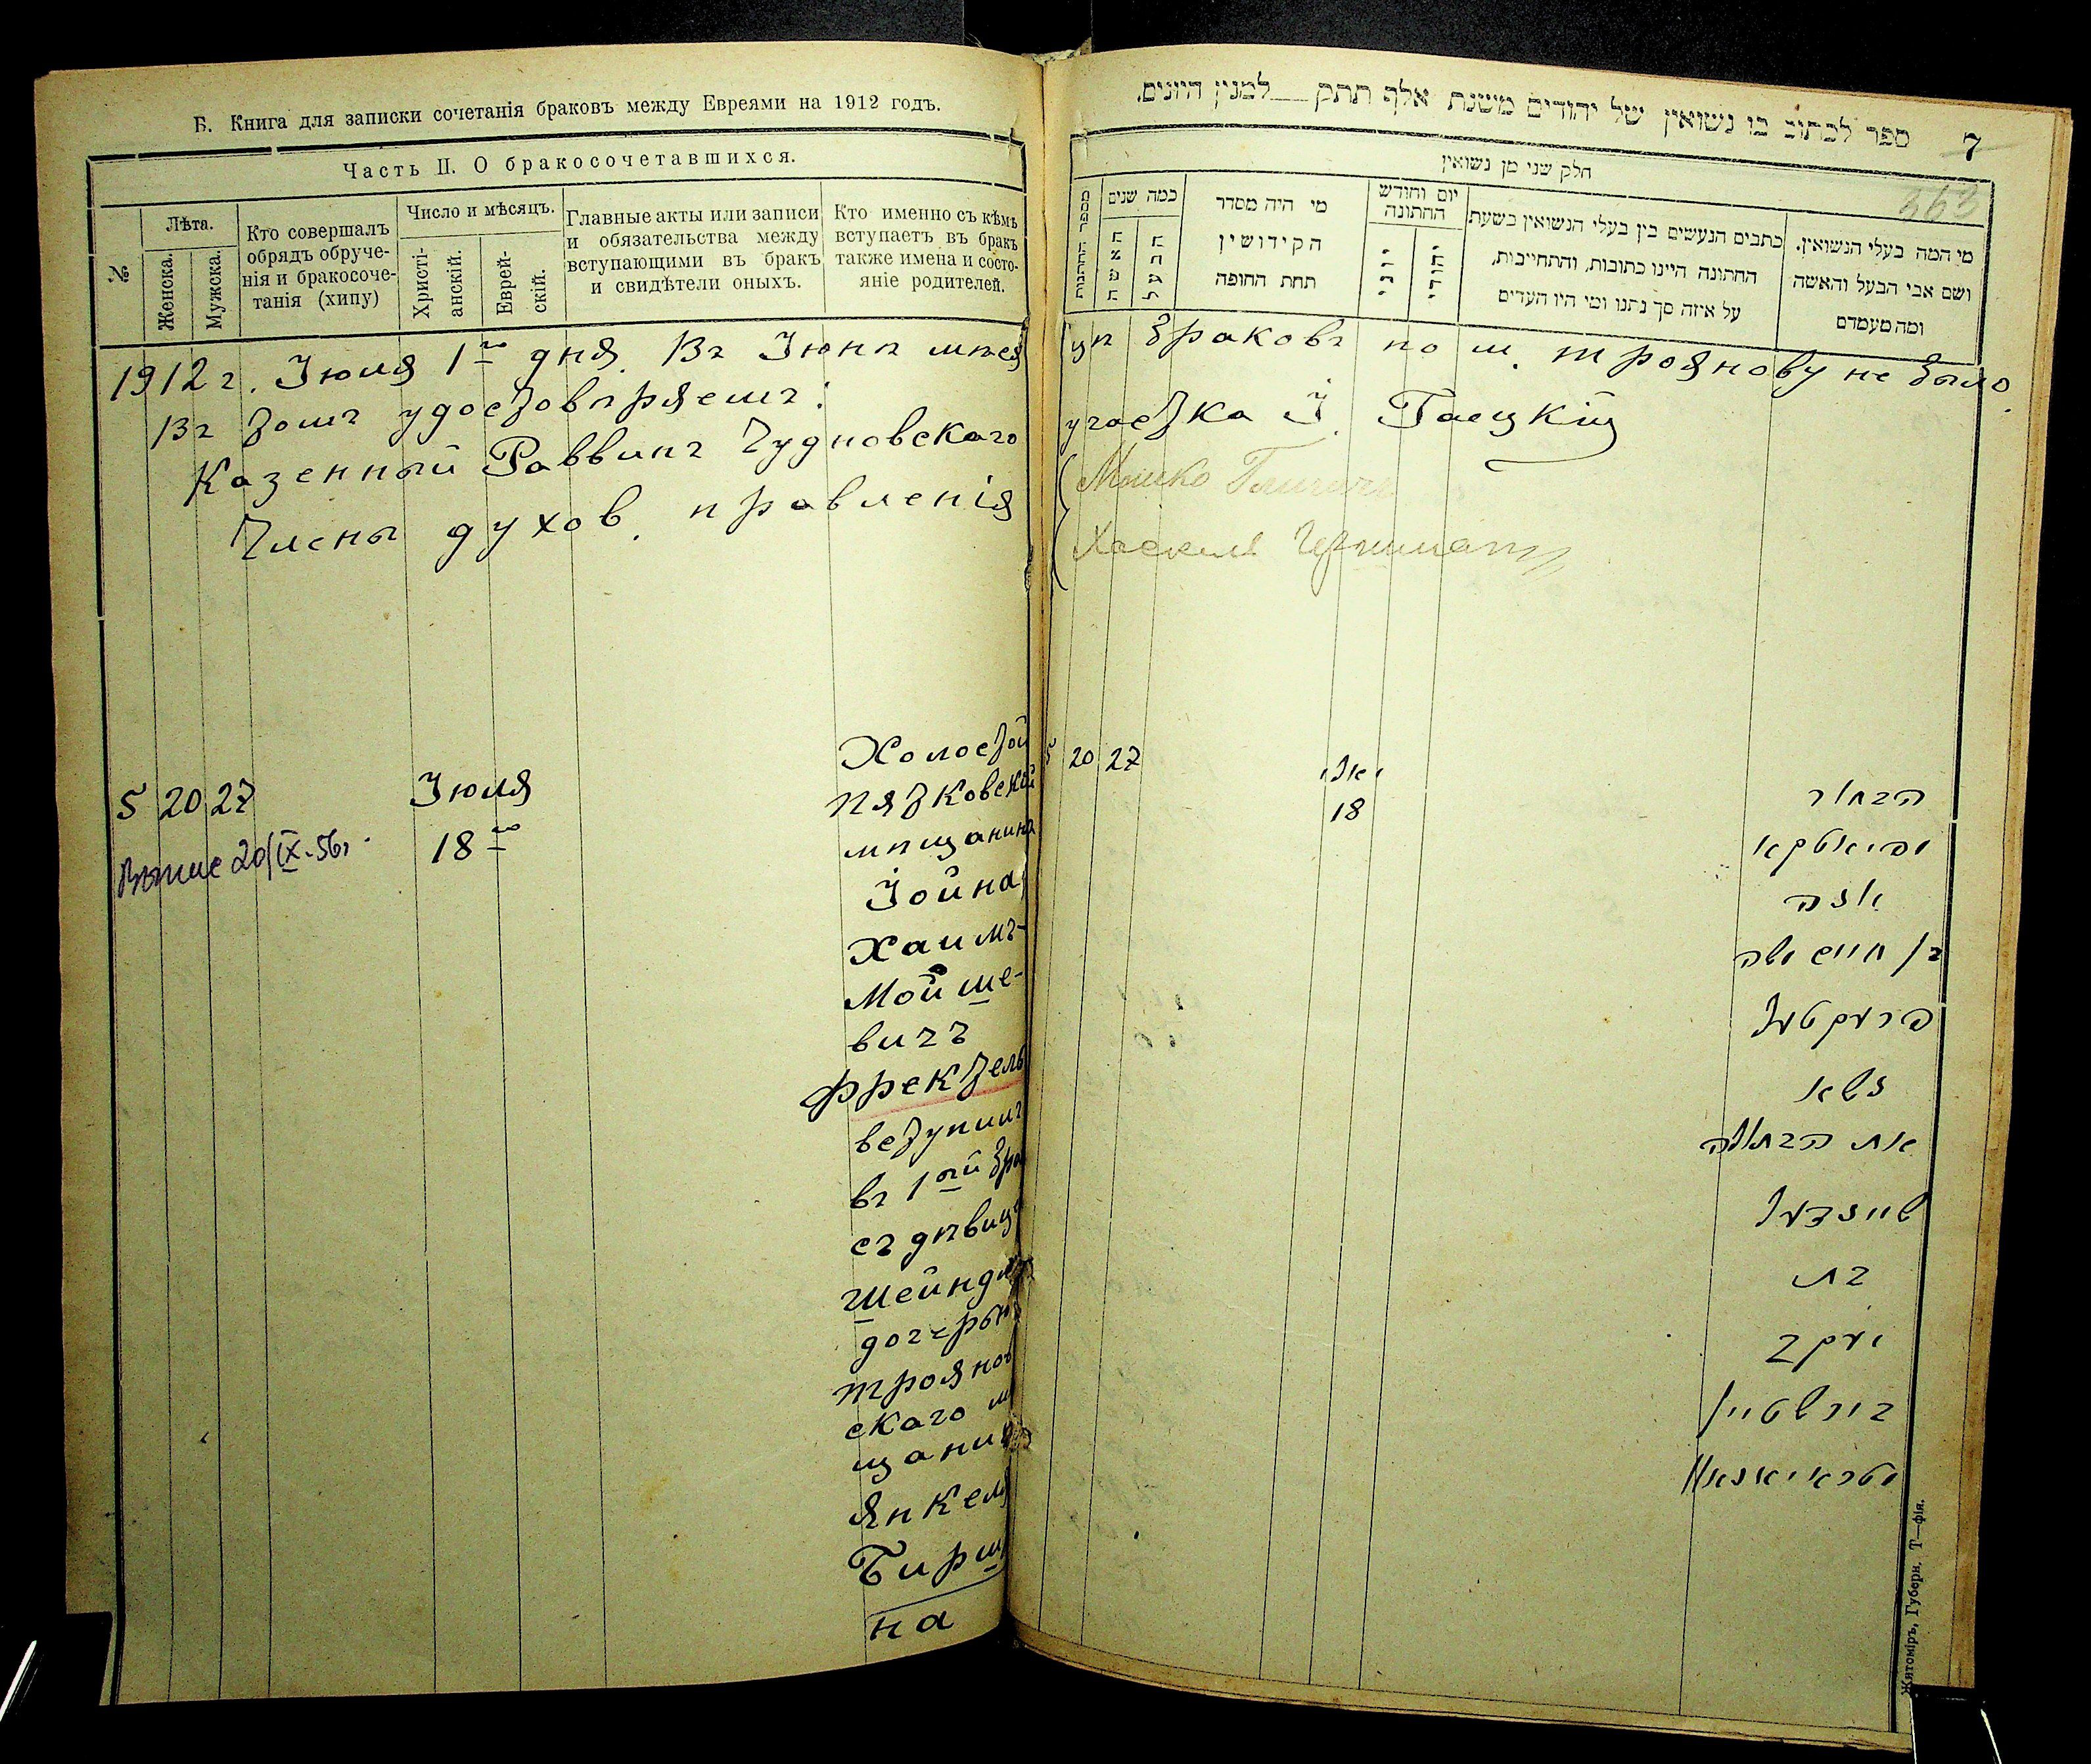 Б. Книга для записки сочетанія браковъ между Евреями на 1912 годъ.
Часть II. О бракосочетавшихся.
№
Лѣта.
Женска.
Мужска.
Кто совершалъ
обрядъ обруче-
нія и бракосоче-
танія (хипу)
Число и мѣсяцъ.
Христі-
анскій.
Еврей-
скій.
Главные акты или записи
и обязательства между
вступающими въ бракъ
и свидѣтели оныхъ.
Кто именно съ кѣмъ
вступаетъ въ бракъ
также имена и состо-
яніе родителей.
1912 г. Іюля 1го дня. Въ Іюнѣ мѣся
Въ томъ удостовѣряемъ:
Казенный Раввинъ Чудновскаго
Члены духов. правленія
5 20 27
20/IX-56г.
Іюля
18го
Холостой
пятковскій
мѣщанинъ
Іойна
Хаимъ-
Мойше-
вичъ
Фректель
вступилъ
въ 1ый бра
съ дѣвице
Шейндл
дочерью
троянов
скаго м
щанин
Янкеля
Бирш
на
ספר לכתוב בו נשואין של יהודים משנת אלף תתק למנין היונים.
7
363
חלק שני מן נשואין
מספר החתונות
כמה שנים
האשה
הבעל
מי היה מסדר
הקידושין
תחת החופה
יום וחודש
החתונה
יוני
יהודי
כתבים הנעשים בין בעלי הנשואין בשעת
החתונה היינו כתובות, והתחייבות,
על איזה סך נתנו ומי היו העדים
מי המה בעלי הנשואין.
ושם אבי הבעל והאשה
ומה מעמדם
цѣ браковъ по м. троянову не было.
участка І. Гаецкій
Мошко
Хаскель
5 20 27
יולי
18
הבחור
מפיאטקא
יונה
בן חיים משה
פרעקטעל
נשא
את הבתולה
שיינדעל
בת
יעקב
בירשטיין
מטראיאנאוו
Житоміръ, Губерн. Т—фія.